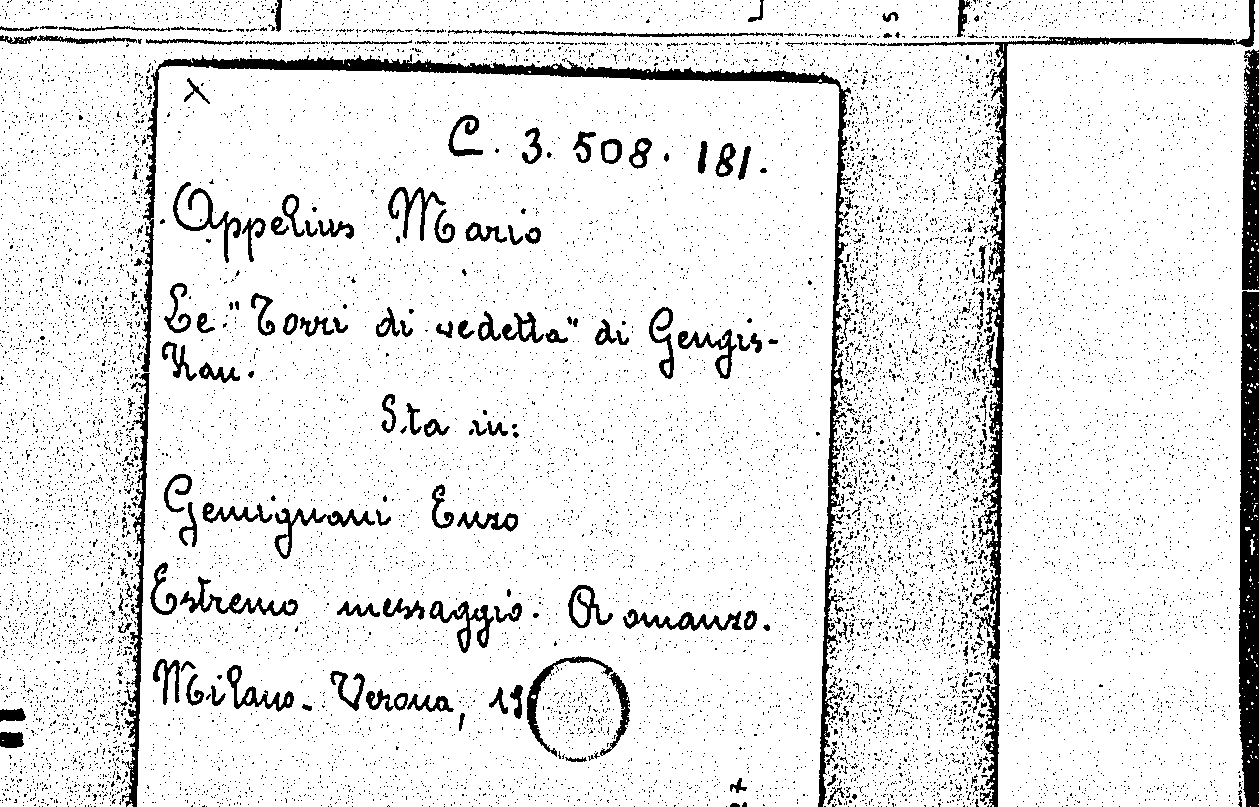 X
C. 3. 508. 181.
Appelius Mario
Le "Torri di vedetta" di Gengis-
Kan.
Sta in:
Gemignani Enzo
Estremo messaggio. Romanzo.
Milano - Verona, 19